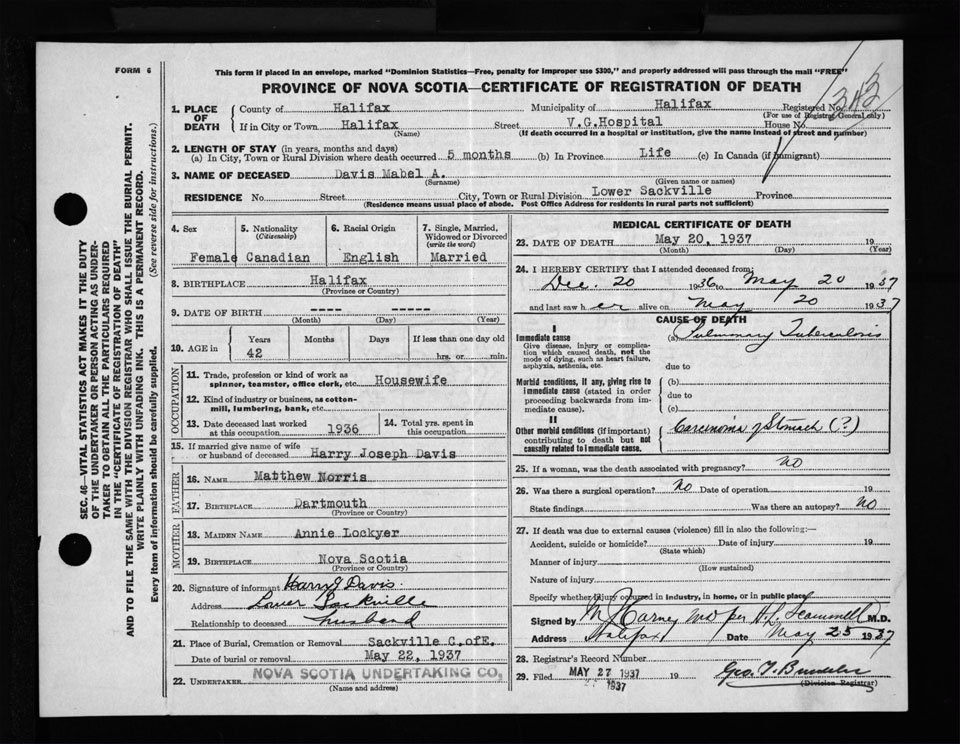 FORM 6
This form if placed in an envelope, marked "Dominion Statistics—Free, penalty for improper use $300," and properly addressed will pass through the mail "FREE"
PROVINCE OF NOVA SCOTIA—CERTIFICATE OF REGISTRATION OF DEATH
SEC. 46—VITAL STATISTICS ACT MAKES IT THE DUTY
OF THE UNDERTAKER OR PERSON ACTING AS UNDER-
TAKER TO OBTAIN ALL THE PARTICULARS REQUIRED
IN THE "CERTIFICATE OF REGISTRATION OF DEATH"
AND TO FILE THE SAME WITH THE DIVISION REGISTRAR WHO SHALL ISSUE THE BURIAL PERMIT.
WRITE PLAINLY WITH UNFADING INK. THIS IS A PERMANENT RECORD.
Every item of information should be carefully supplied. (See reverse side for instructions.)
1. PLACE OF DEATH County of Halifax Municipality of Halifax Registered No. 313
(For use of Registrar General only)
If in City or Town Halifax Street V.G.Hospital House No.
(Name) (If death occurred in a hospital or institution, give the name instead of street and number)
2. LENGTH OF STAY (in years, months and days)
(a) In City, Town or Rural Division where death occurred 5 months (b) In Province Life (c) In Canada (if immigrant)
3. NAME OF DECEASED Davis Mabel A.
(Surname) (Given name or names)
RESIDENCE No. Street City, Town or Rural Division Lower Sackville Province
(Residence means usual place of abode. Post Office Address for residents in rural parts not sufficient)
4. Sex 5. Nationality (Citizenship) 6. Racial Origin 7. Single, Married, Widowed or Divorced (write the word)
Female Canadian English Married
8. BIRTHPLACE Halifax
(Province or Country)
9. DATE OF BIRTH ---- -----
(Month) (Day) (Year)
10. AGE in Years Months Days If less than one day old
42 hrs. or min.
OCCUPATION
11. Trade, profession or kind of work as spinner, teamster, office clerk, etc. Housewife
12. Kind of industry or business, as cotton-mill, lumbering, bank, etc.
13. Date deceased last worked at this occupation 1936 14. Total yrs. spent in this occupation
15. If married give name of wife or husband of deceased Harry Joseph Davis
FATHER
16. NAME Matthew Norris
17. BIRTHPLACE Dartmouth
(Province or Country)
MOTHER
18. MAIDEN NAME Annie Lockyer
19. BIRTHPLACE Nova Scotia
(Province or Country)
20. Signature of informant Harry J Davis
Address Lower Sackville
Relationship to deceased husband
21. Place of Burial, Cremation or Removal Sackville C.ofE.
Date of burial or removal May 22, 1937
22. UNDERTAKER NOVA SCOTIA UNDERTAKING CO.
(Name and address)
MEDICAL CERTIFICATE OF DEATH
23. DATE OF DEATH May 20, 1937 19
(Month) (Day) (Year)
24. I HEREBY CERTIFY that I attended deceased from:
Dec. 20 1936 to May 20 1937
and last saw her alive on May 20 1937
CAUSE OF DEATH
I
Immediate cause (a) Pulmonary Tuberculosis
Give disease, injury or complication which caused death, not the mode of dying, such as heart failure, asphyxia, asthenia, etc.
due to
Morbid conditions, if any, giving rise to immediate cause (stated in order proceeding backwards from immediate cause).
(b)
due to
(c)
II
Other morbid conditions (if important) contributing to death but not causally related to immediate cause.
Carcinoma of Stomach (?)
25. If a woman, was the death associated with pregnancy? No
26. Was there a surgical operation? No Date of operation 19
State findings Was there an autopsy? No
27. If death was due to external causes (violence) fill in also the following:—
Accident, suicide or homicide? Date of injury 19
(State which)
Manner of injury
(How sustained)
Nature of injury
Specify whether injury occurred in industry, in home, or in public place
Signed by M Harney MD per H.L. Scammell M.D.
Address Halifax Date May 25 1937
28. Registrar's Record Number
29. Filed MAY 27 1937
1937
(Division Registrar)